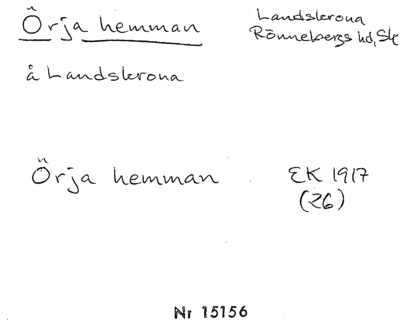 Örja hemman
Landskrona
Rönnebergs hd, Sk
å Landskrona
Örja hemman
EK 1917
(26)
Nr 15156